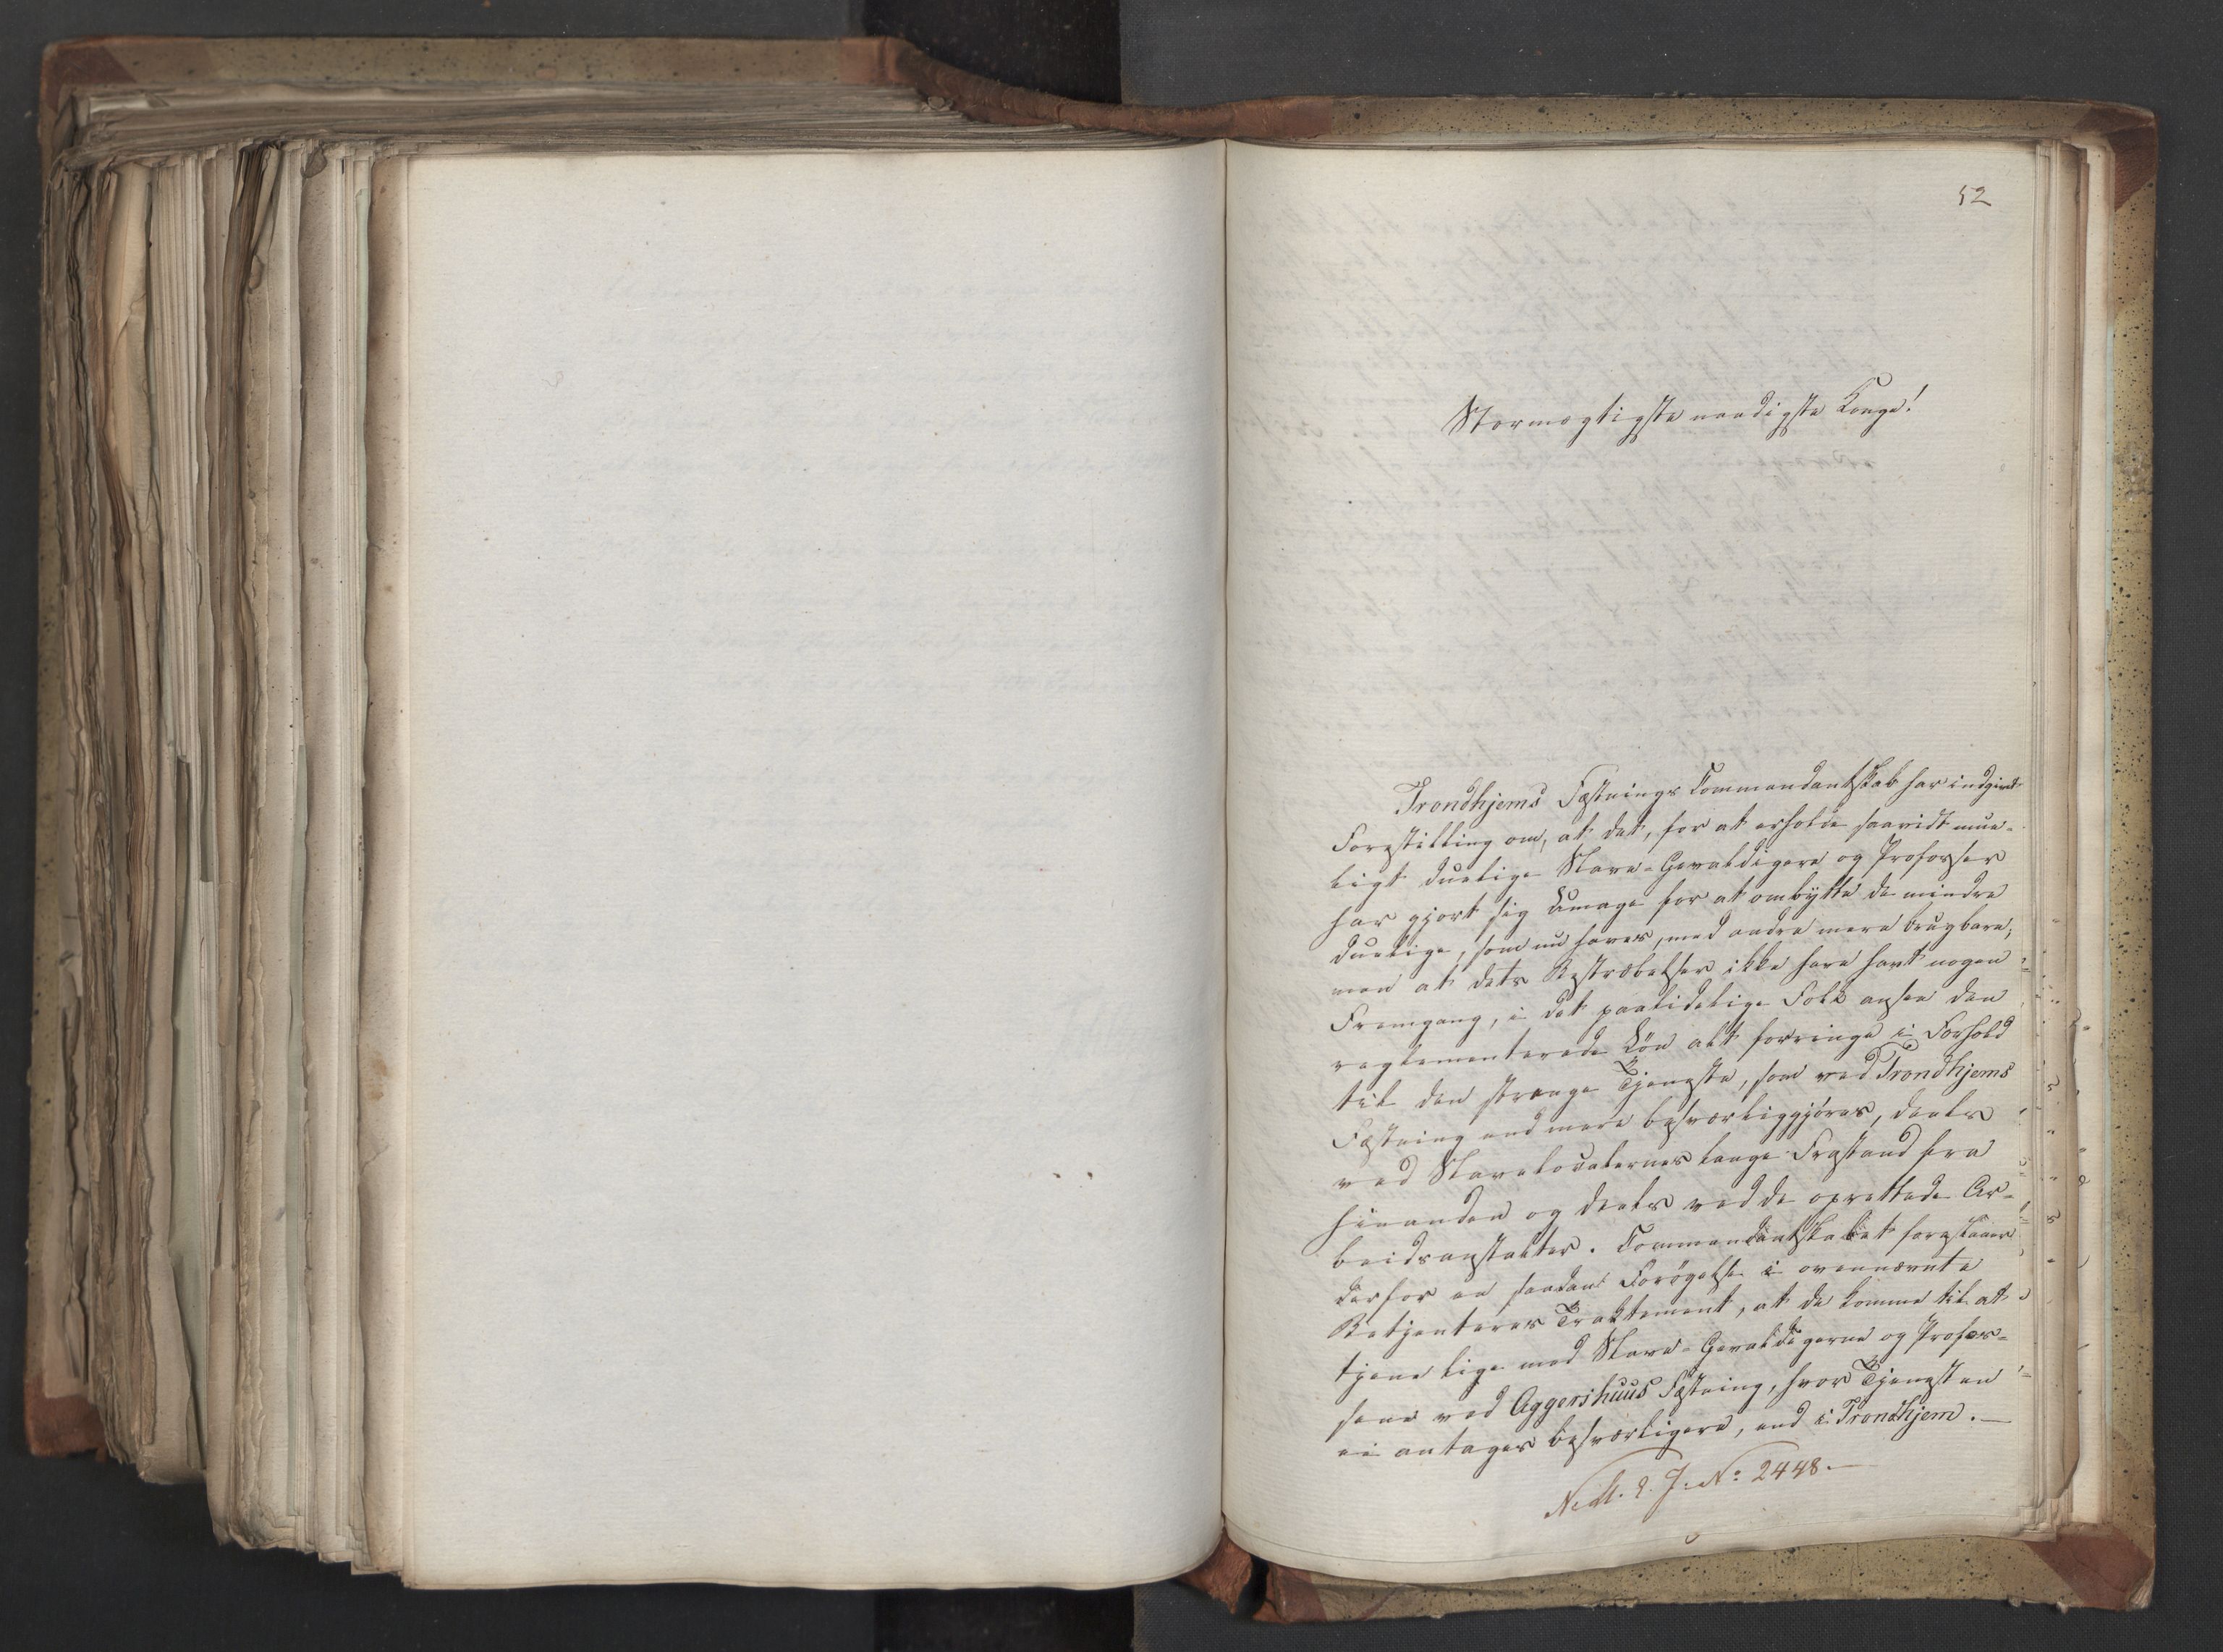 52
Stormægtigste naadigste Konge!
Trondhjems Fæstnings Commandantskab har indgivet
Forestilling om, at det, for at erholde saavidt mue-
ligt duelige Slave-Gevaldigere og Profosser
har gjort sig Umage for at ombytte de mindre
duelige, som nu haves, med andre mere brugbare,
men at dets Bestræbelser ikke have havt nogen
Fremgang, i det paalidelige Folk ansee den
reglementerede Løn alt forringe i Forhold
til den strænge Tjeneste, som ved Trondhjems
Fæstning end mere besværliggjøres, deels
ved Slavelocalernes lange Frastand fra
hinanden og deels ved de oprettede Ar-
beidsanstalter. Commandantskabet foreslaaer
derfor en saadan Forøgelse i ovennævnte
Betjenteres Tractement, at de komme til at
tjene lige med Slave-Gevaldigerne og Profos-
sene ved Aggershuus Fæstning, hvor Tjenesten
ei antages besværligere, end i Trondhjem.—
No 2448.—